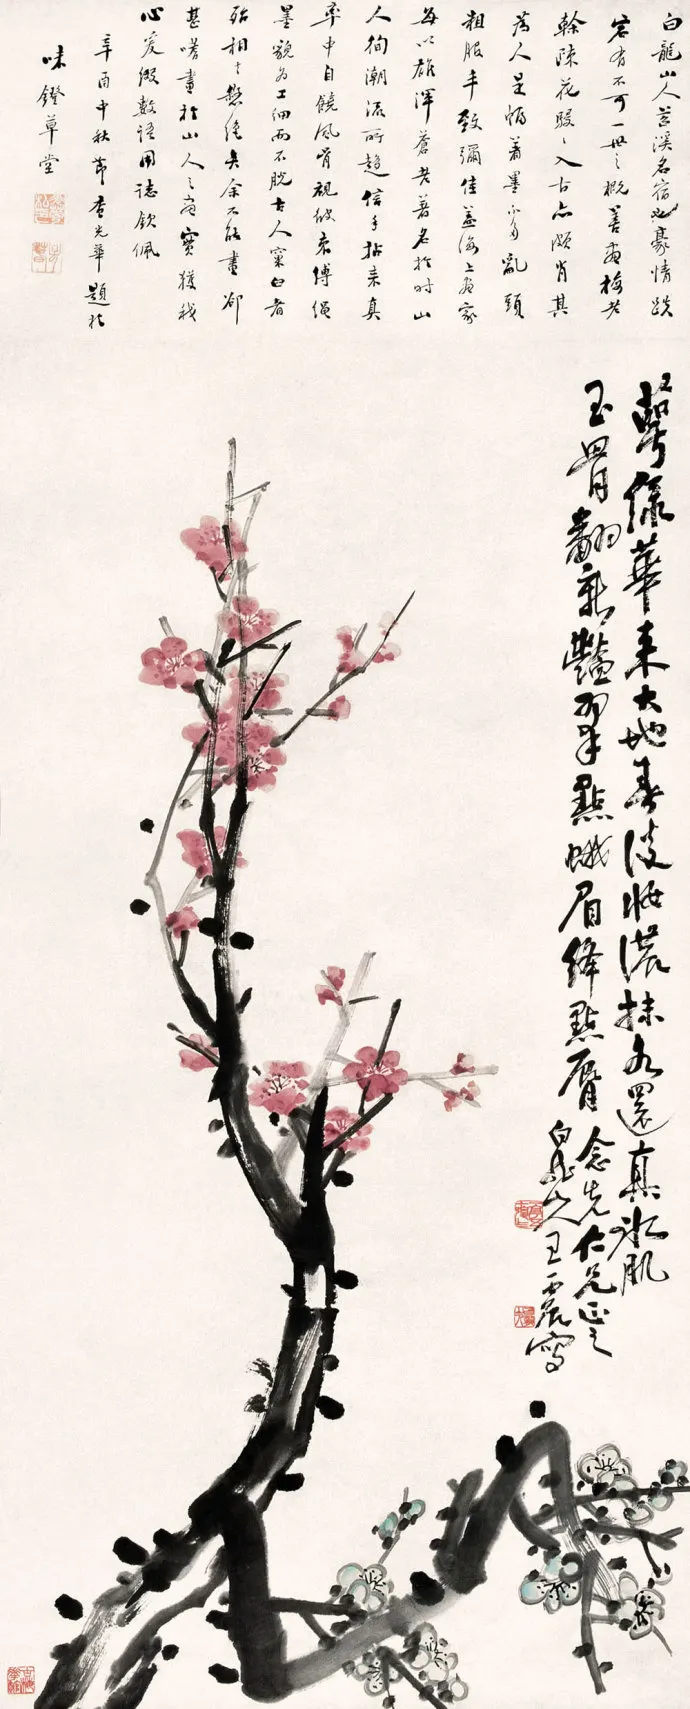 白龍山人苕溪名宿也豪情跌
宕有不可一世之概善畫梅老
榦陳花駸駸入古亦頗肖其
為人是幀著墨不多亂頭
粗服手致彌佳蓋海上畫家
每以雄渾蒼老著名於時山
人徇潮流所趨信手拈來真
率中自饒風骨視彼束縛繩
墨貌為工細而不脫古人窠臼者
殆相去懸絕矣余不能畫卻
甚嗜畫於山人之畫寶獲我
心爰綴數語用志欽佩
辛酉中秋節 光華題於
味鐙草堂
萼綠華來大地春淡妝濃抹各還真冰肌
玉骨翻新豔翠點蛾眉絳點脣
念先仁兄正之
白龍山人王震寫